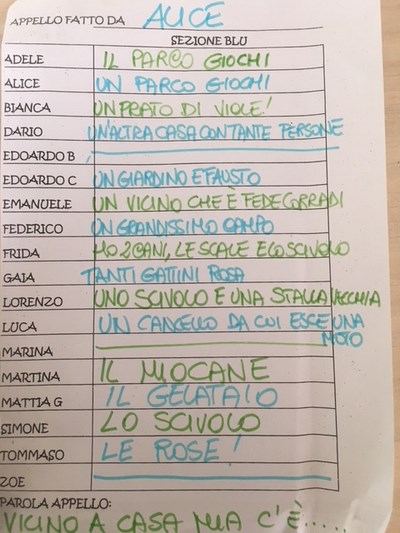 APPELLO FATTO DA ALICE
SEZIONE BLU
ADELE IL PARCO GIOCHI
ALICE UN PARCO GIOCHI
BIANCA UN PRATO DI VIOLE!
DARIO UN'ALTRA CASA CON TANTE PERSONE
EDOARDO B
EDOARDO C UN GIARDINO E FAUSTO
EMANUELE UN VICINO CHE È FEDE CORRADI
FEDERICO UN GRANDISSIMO CAMPO
FRIDA HO 2 CANI, LE SCALE E LO SCIVOLO
GAIA TANTI GATTINI ROSA
LORENZO UNO SCIVOLO E UNA STALLA VECCHIA
LUCA UN CANCELLO DA CUI ESCE UNA
MOTO
MARINA
MARTINA IL MIO CANE
MATTIA G IL GELATAIO
SIMONE LO SCIVOLO
TOMMASO LE ROSE!
ZOE
PAROLA APPELLO:
VICINO A CASA MIA C'È.....